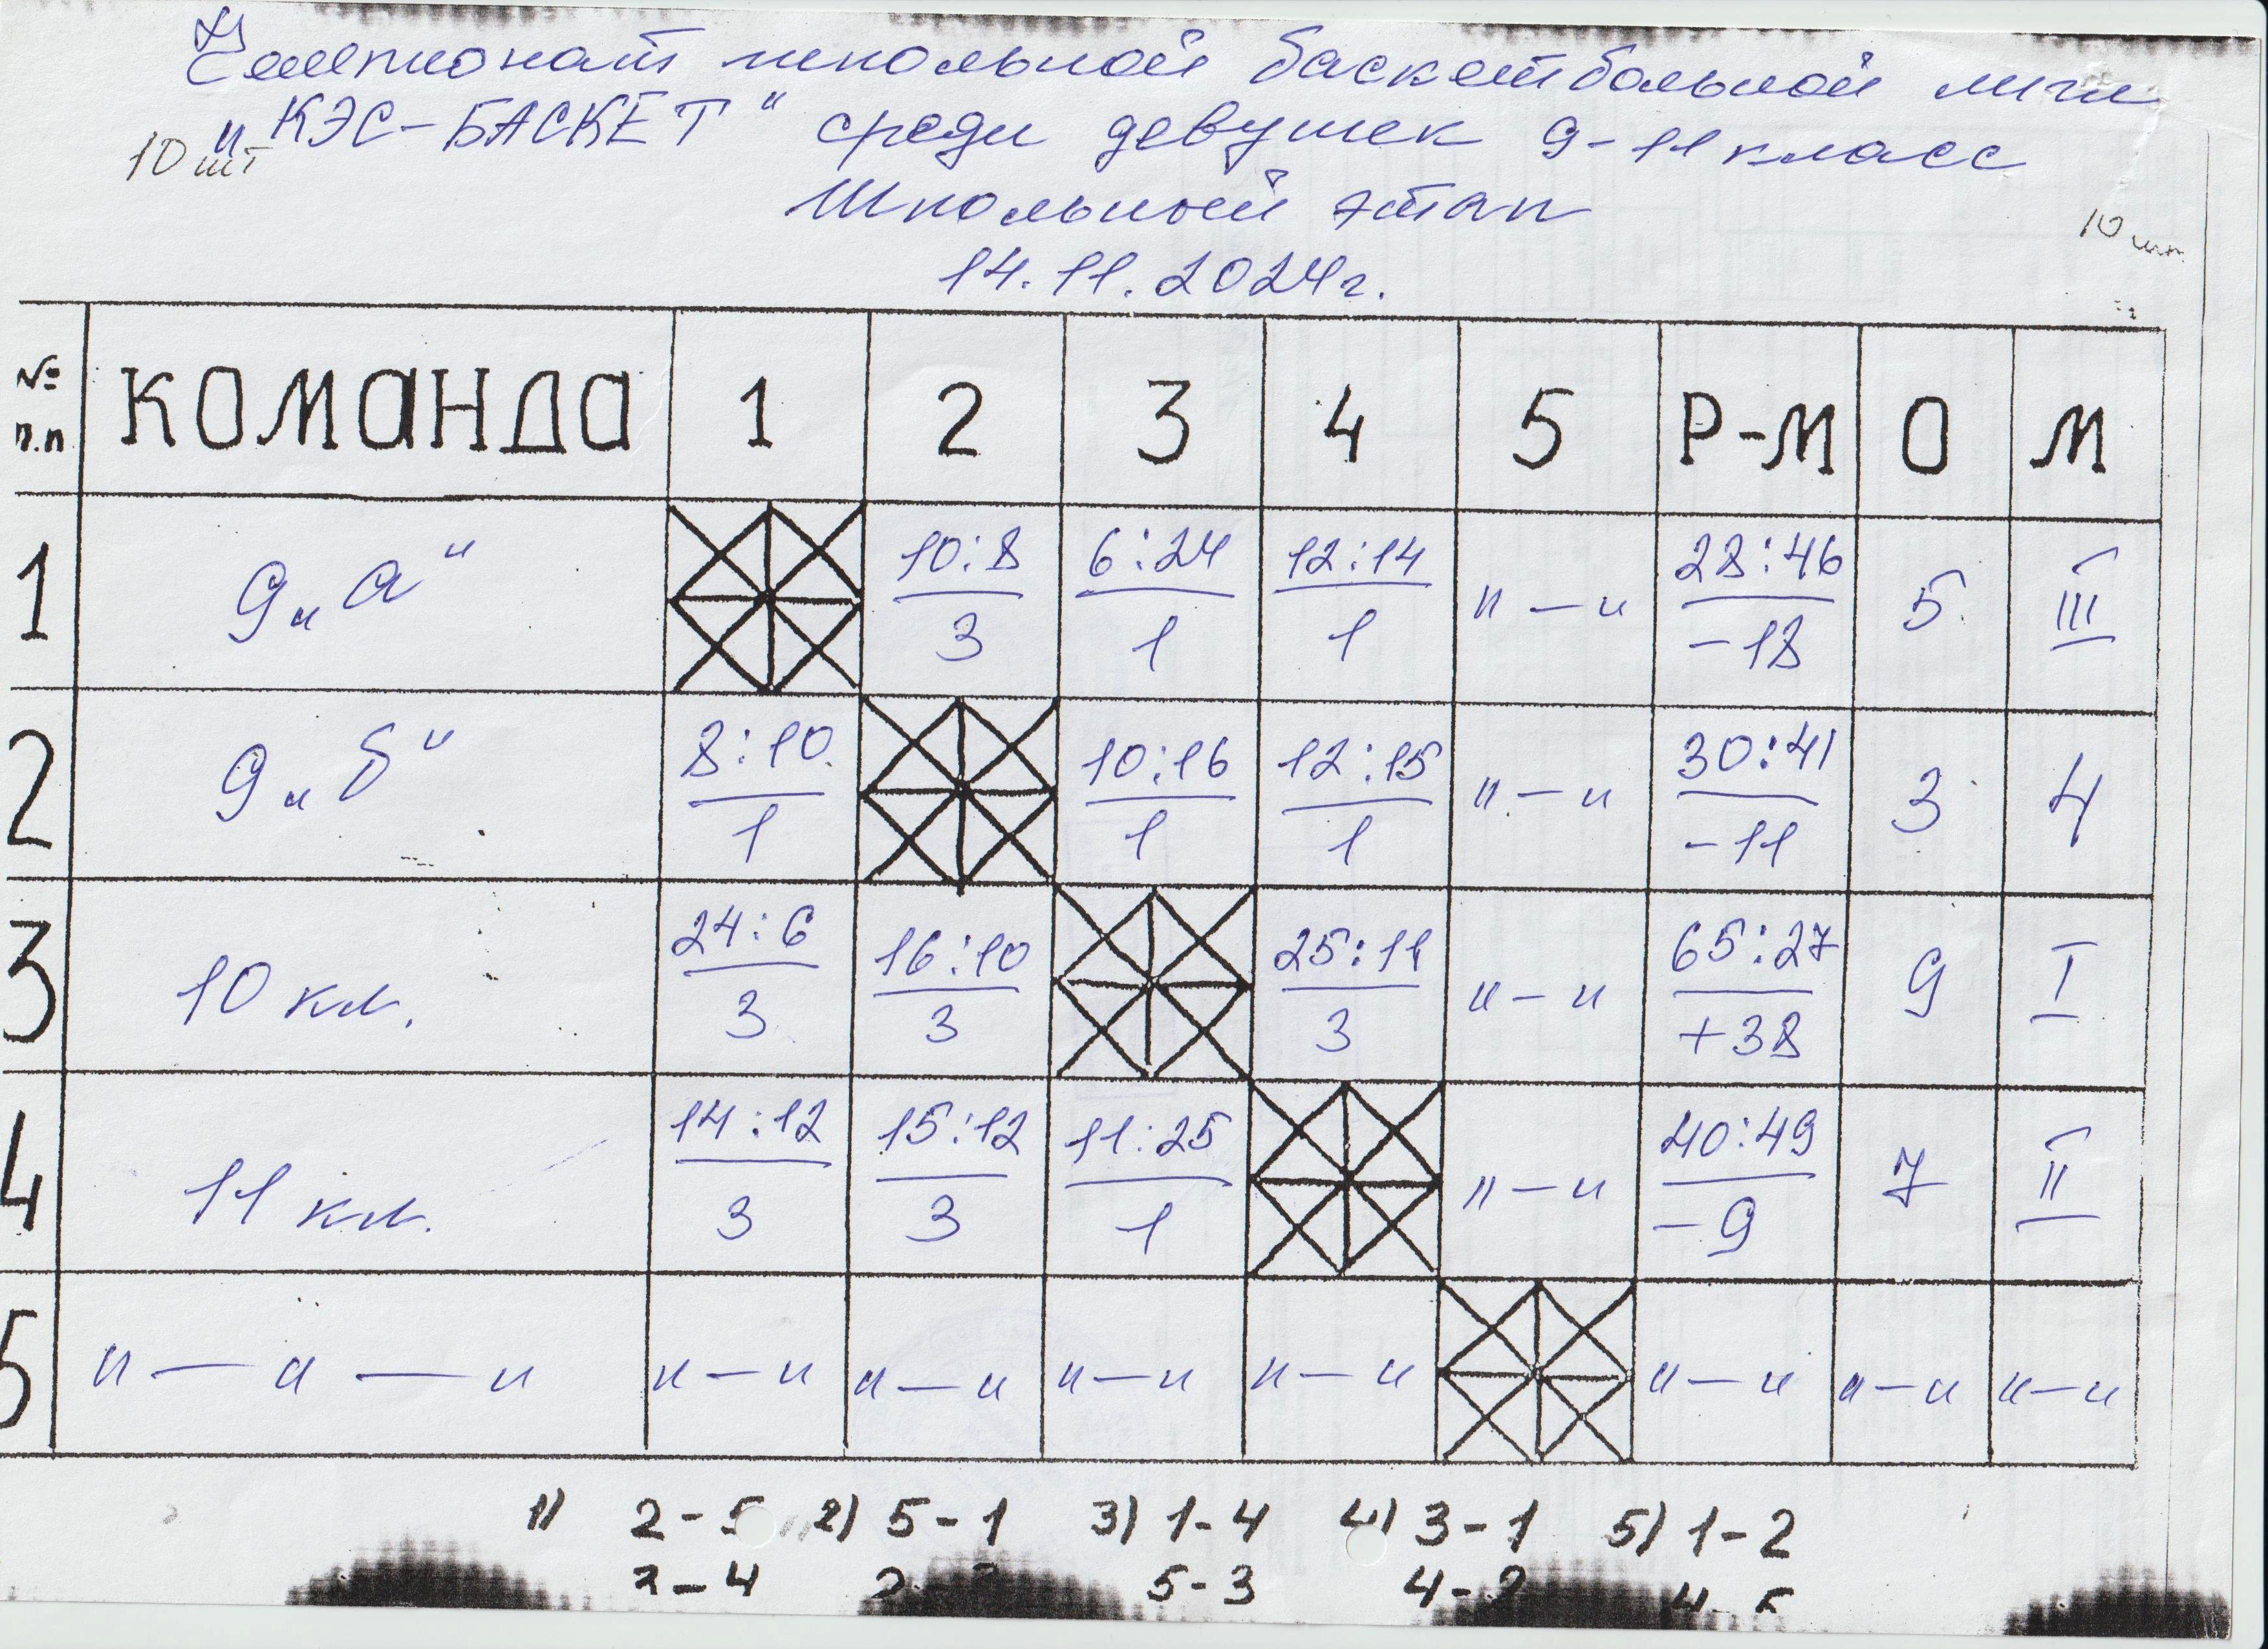 Чемпионат школьной баскетбольной лиги
"КЭС-БАСКЕТ" среди девушек 9-11 класс
10 шт
Школьный этап
10 шт
14.11.2024г.
№ п.п КОМАНДА 1 2 3 4 5 Р-М О М
1 9 "а" 10:8 6:24 12:14 "-" 28:46 5 III
3 1 1 -18
2 9 "б" 8:10 10:16 12:15 "-" 30:41 3 4
1 1 1 -11
3 10 кл. 24:6 16:10 25:11 "-" 65:27 9 I
3 3 3 +38
4 11 кл. 14:12 15:12 11:25 "-" 40:49 7 II
3 3 1 -9
5 " — " — " "-" "-" "-" "-" "-" "-" "-"
1) 2-5 2) 5-1 3) 1-4 4) 3-1 5) 1-2
3-4 5-3